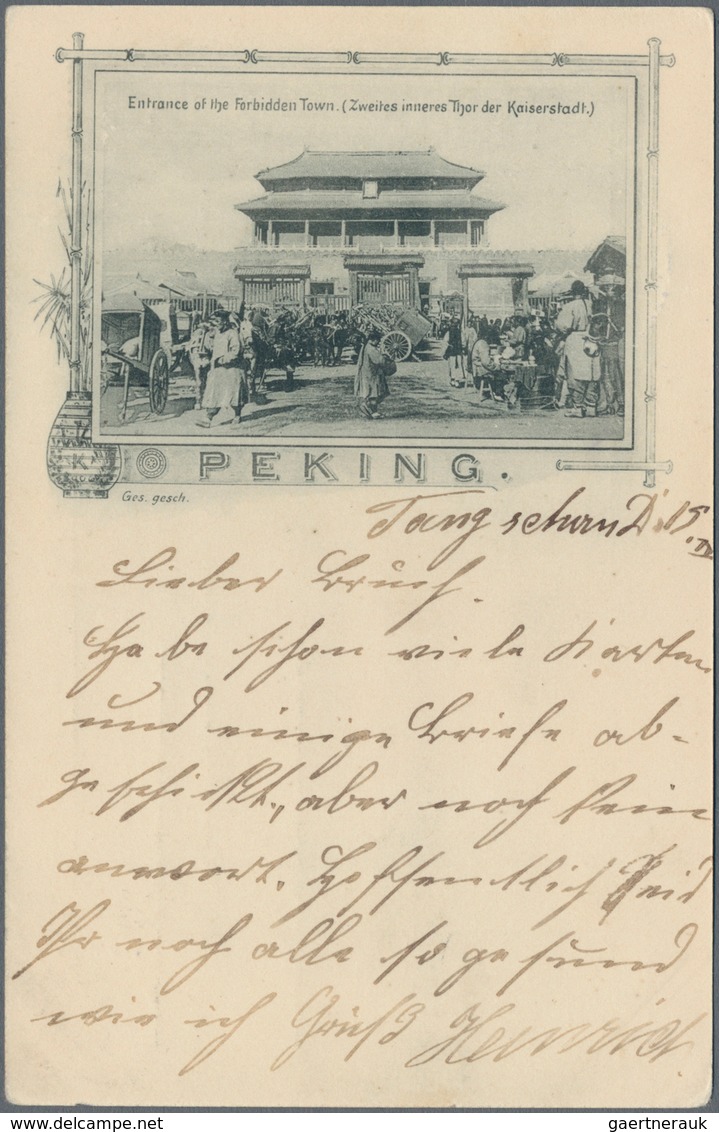 Entrance of the Forbidden Town. (Zweites inneres Thor der Kaiserstadt.)
K
PEKING.
Ges. gesch.
Tang schan D. 15. IV
Lieber Bruch.
Habe schon viele Karten
und einige Briefe ab-
geschickt, aber noch kein
anwort. Hoffentlich seid
Ihr noch alle so gesund
wie ich Gruß Heinrich.
gaertnerauk